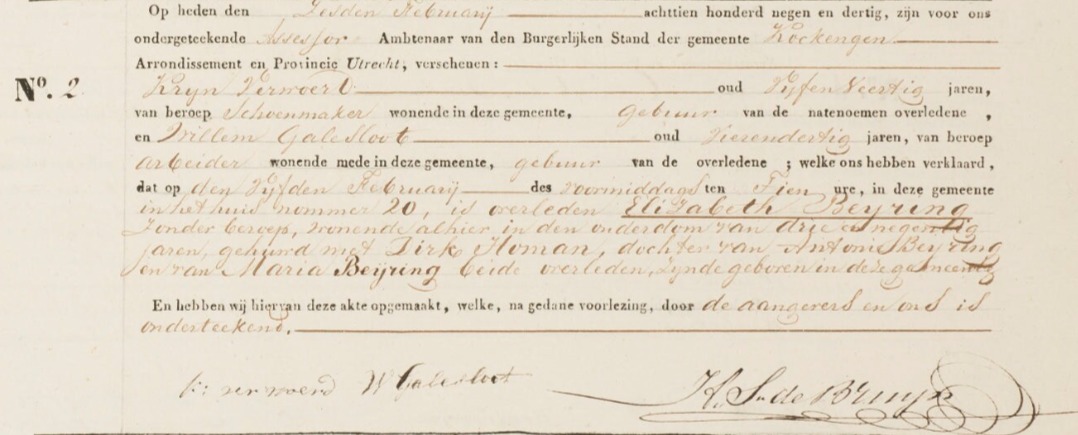 Op heden den Zesden Februarij achttien honderd negen en dertig, zijn voor ons
ondergeteekende Assessor Ambtenaar van den Burgerlijken Stand der gemeente Kockengen
Arrondissement en Provincie Utrecht, verschenen:
No. 2
Kryn Verwoerd oud Vyfen Veertig jaren,
van beroep Schoenmaker wonende in deze gemeente, gebuur van de natenoemen overledene,
en Willem Galesloot oud Vierendertig jaren, van beroep
arbeider wonende mede in deze gemeente, gebuur van de overledene; welke ons hebben verklaard,
dat op den Vyfden Februarij des voormiddags ten Tien ure, in deze gemeente
in het huis nommer 20, is overleden Elizabeth Beyring
zonder beroep, wonende alhier in den ouderdom van drie en negentig
jaren, gehuwd met Dirk Homan, dochter van Antonie Beyring
en van Maria Beÿring beide overleden, zynde geboren in deze gemeente
En hebben wij hiervan deze akte opgemaakt, welke, na gedane voorlezing, door de aangevers en ons is
onderteekend.
K: verwoerd W Galesloot H. Sn. de Bruijn